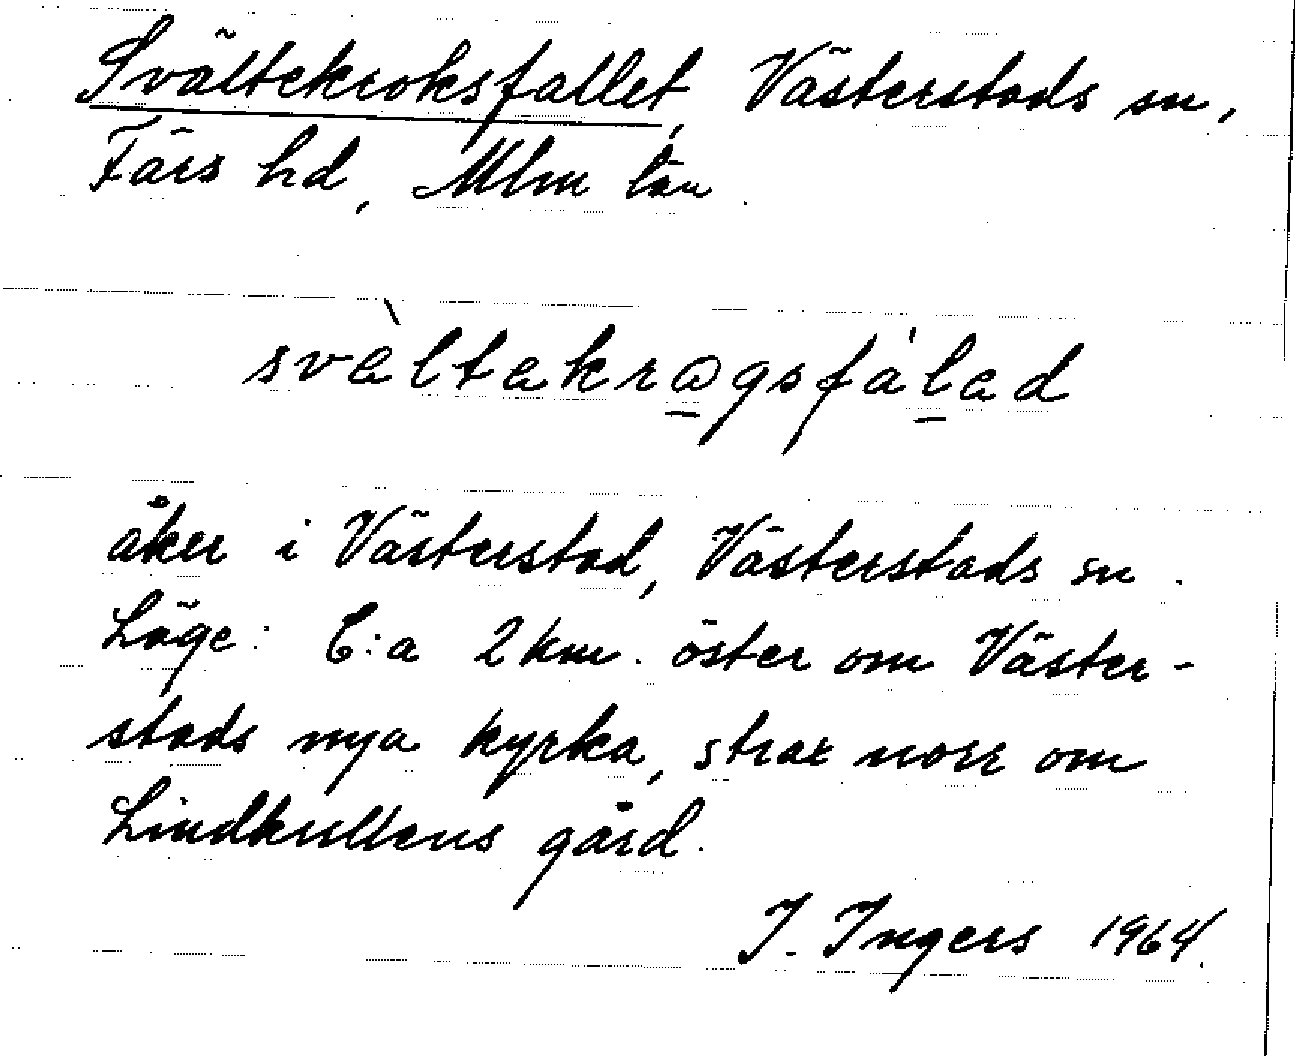 Svältekroksfallet, Västerstads sn,
Färs hd, Mlm län.
svältekrogsfàlad
åker i Västerstad, Västerstads sn.
Läge: C:a 2 km. öster om Väster-
stads nya kyrka, strax norr om
Lindkullens gård.
I. Ingers 1964.